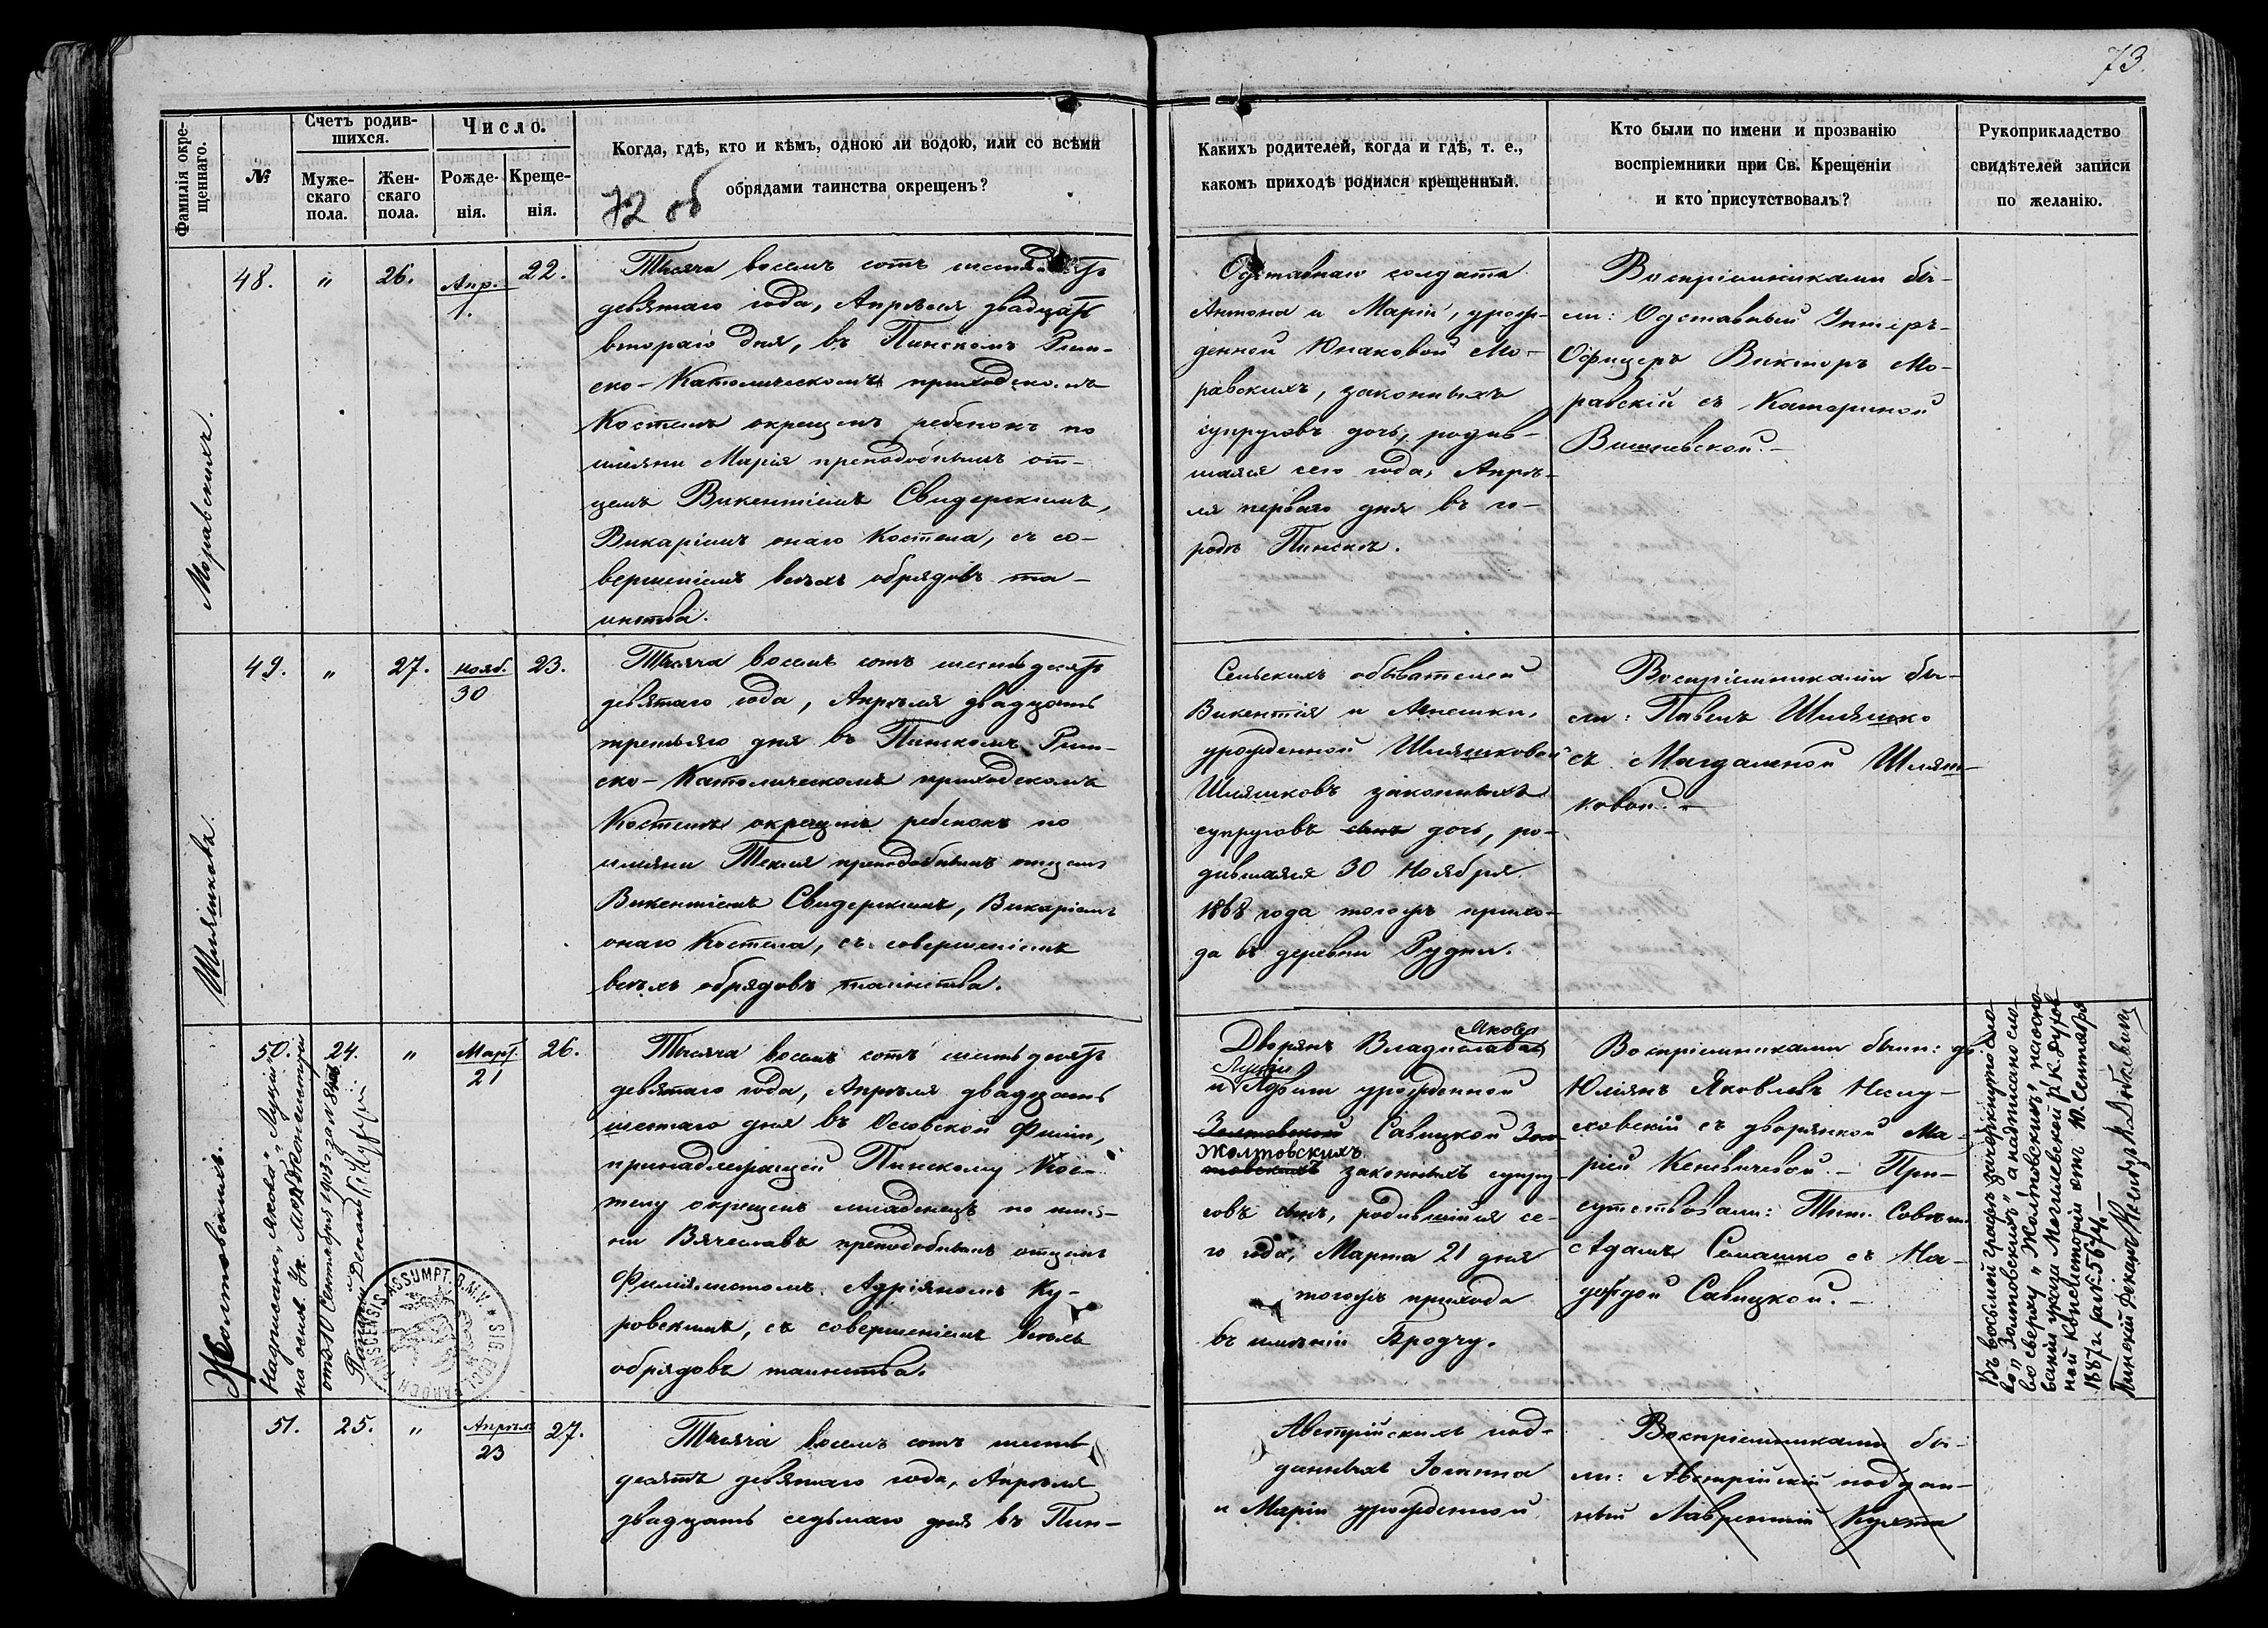 73.
Фамилія окре-
щеннаго.
№
Счетъ родив-
шихся.
Муже-
скаго
пола.
Жен-
скаго
пола.
Число.
Рожде-
нія.
Креще-
нія.
Когда, гдѣ, кто и кѣмъ, одною ли водою, или со всѣми
обрядами таинства окрещенъ?
72 об
Какихъ родителей, когда и гдѣ, т. е.,
какомъ приходѣ родился крещенный.
Кто были по имени и прозванію
воспріемники при Св. Крещеніи
и кто присутствовалъ?
Рукоприкладство
свидѣтелей записи
по желанію.
Моравскихъ.
48. " 26. Апр. 1. 22.
Тысяча восемь сотъ шестьдесятъ
девятаго года, Апрѣля двадцать
втораго дня, въ Пинскомъ Рим-
ско-Католическомъ приходскомъ
Костелѣ окрещенъ ребенокъ по
имяни Марія преподобнымъ от-
цемъ Викентіемъ Свидерскимъ,
Викаріемъ онаго Костела, съ со-
вершеніемъ всѣхъ обрядовъ та-
инства.
Одставнаго солдата
Антона и Маріи, урож-
денной Юнаковой Мо-
равскихъ, законныхъ
супруговъ дочь, родив-
шаяся сего года, Апрѣ-
ля перваго дня въ го-
родѣ Пинскѣ.
Воспріемниками бы-
ли: Одставный Унтеръ-
Офицеръ Викторъ Мо-
равскій съ Катериной
Вишневской.-
Шляшкова.
49. " 27. Нояб. 30 23.
Тысяча восемь сотъ шестьдесятъ
девятаго года, Апрѣля двадцать
третьяго дня въ Пинскомъ Рим-
ско-Католическомъ приходскомъ
Костелѣ окрещенъ ребенокъ по
имяни Текля преподобнымъ отцемъ
Викентіемъ Свидерскимъ, Викаріемъ
онаго Костела, съ совершеніемъ
всѣхъ обрядовъ таинства.
Сельскихъ обывателей
Викентія и Агнешки,
урожденной Шляшковой
Шляшковъ законныхъ
супруговъ сынъ дочь, ро-
дившаяся 30 Ноября
1868 года тогожъ прихо-
да въ деревни Рудки.
Воспріемниками бы-
ли: Павелъ Шляшко
съ Магдаленой Шляш-
ковой.-
Жолтовскихъ.
50. 24. " Март. 21 26.
Надписано „Якова" „Луціи"
на основ. Ук. Мог. Консисторіи
отъ 10 Сентября 1913 г. за №
Пинскій Деканъ
PINSCENSIS ASSUMPT. B.M.V. * SIG. ECCL. PAROCH.
Тысяча восемь сотъ шестьдесятъ
девятаго года, Апрѣля двадцать
шестаго дня въ Осовской Филіи,
принадлежащей Пинскому Кос-
телу окрещенъ младенецъ по имя-
ни Вячеславъ преподобнымъ отцемъ
Филіялистомъ Адріяномъ Ку-
ровскимъ, съ совершеніемъ всѣхъ
обрядовъ таинства.
Якова
Дворянъ Владислава
Луціи
и Людвии урожденной
Золтовской Савицкой Зол-
Жолтовскихъ
товскихъ законныхъ супру-
говъ сынъ, родившійся се-
го года, Марта 21 дня
тогожъ прихода
въ имѣніи Бродчу.
Воспріемниками были: дв.
Юліянъ Яковлевъ Неслу-
ховскій съ дворянкой Ма-
ріей Кеневичевой.- При-
сутствовали: Тит. Совѣт.
Адамъ Семашко съ На-
деждой Савицкой.-
Въ восьмой графѣ зачеркнуто сло-
во „Золтовскихъ" а надписано сло-
во сверху „Жолтовскихъ" на осно-
ваніи указа Могилевской р. к. духов
ной консисторіи отъ 10 Сентября
1887 г. за № 5674.-
Пинскій Деканъ
51. 25. " Апрѣля 23 27.
Тысяча восемь сотъ шесть-
десятъ девятаго года, Апрѣля
двадцать седьмаго дня въ Пин-
Австрійскихъ под-
данныхъ Іоанна
и Маріи урожденной
Воспріемниками бы-
ли: Австрійскій поддан-
ный Лаврентій Кухта